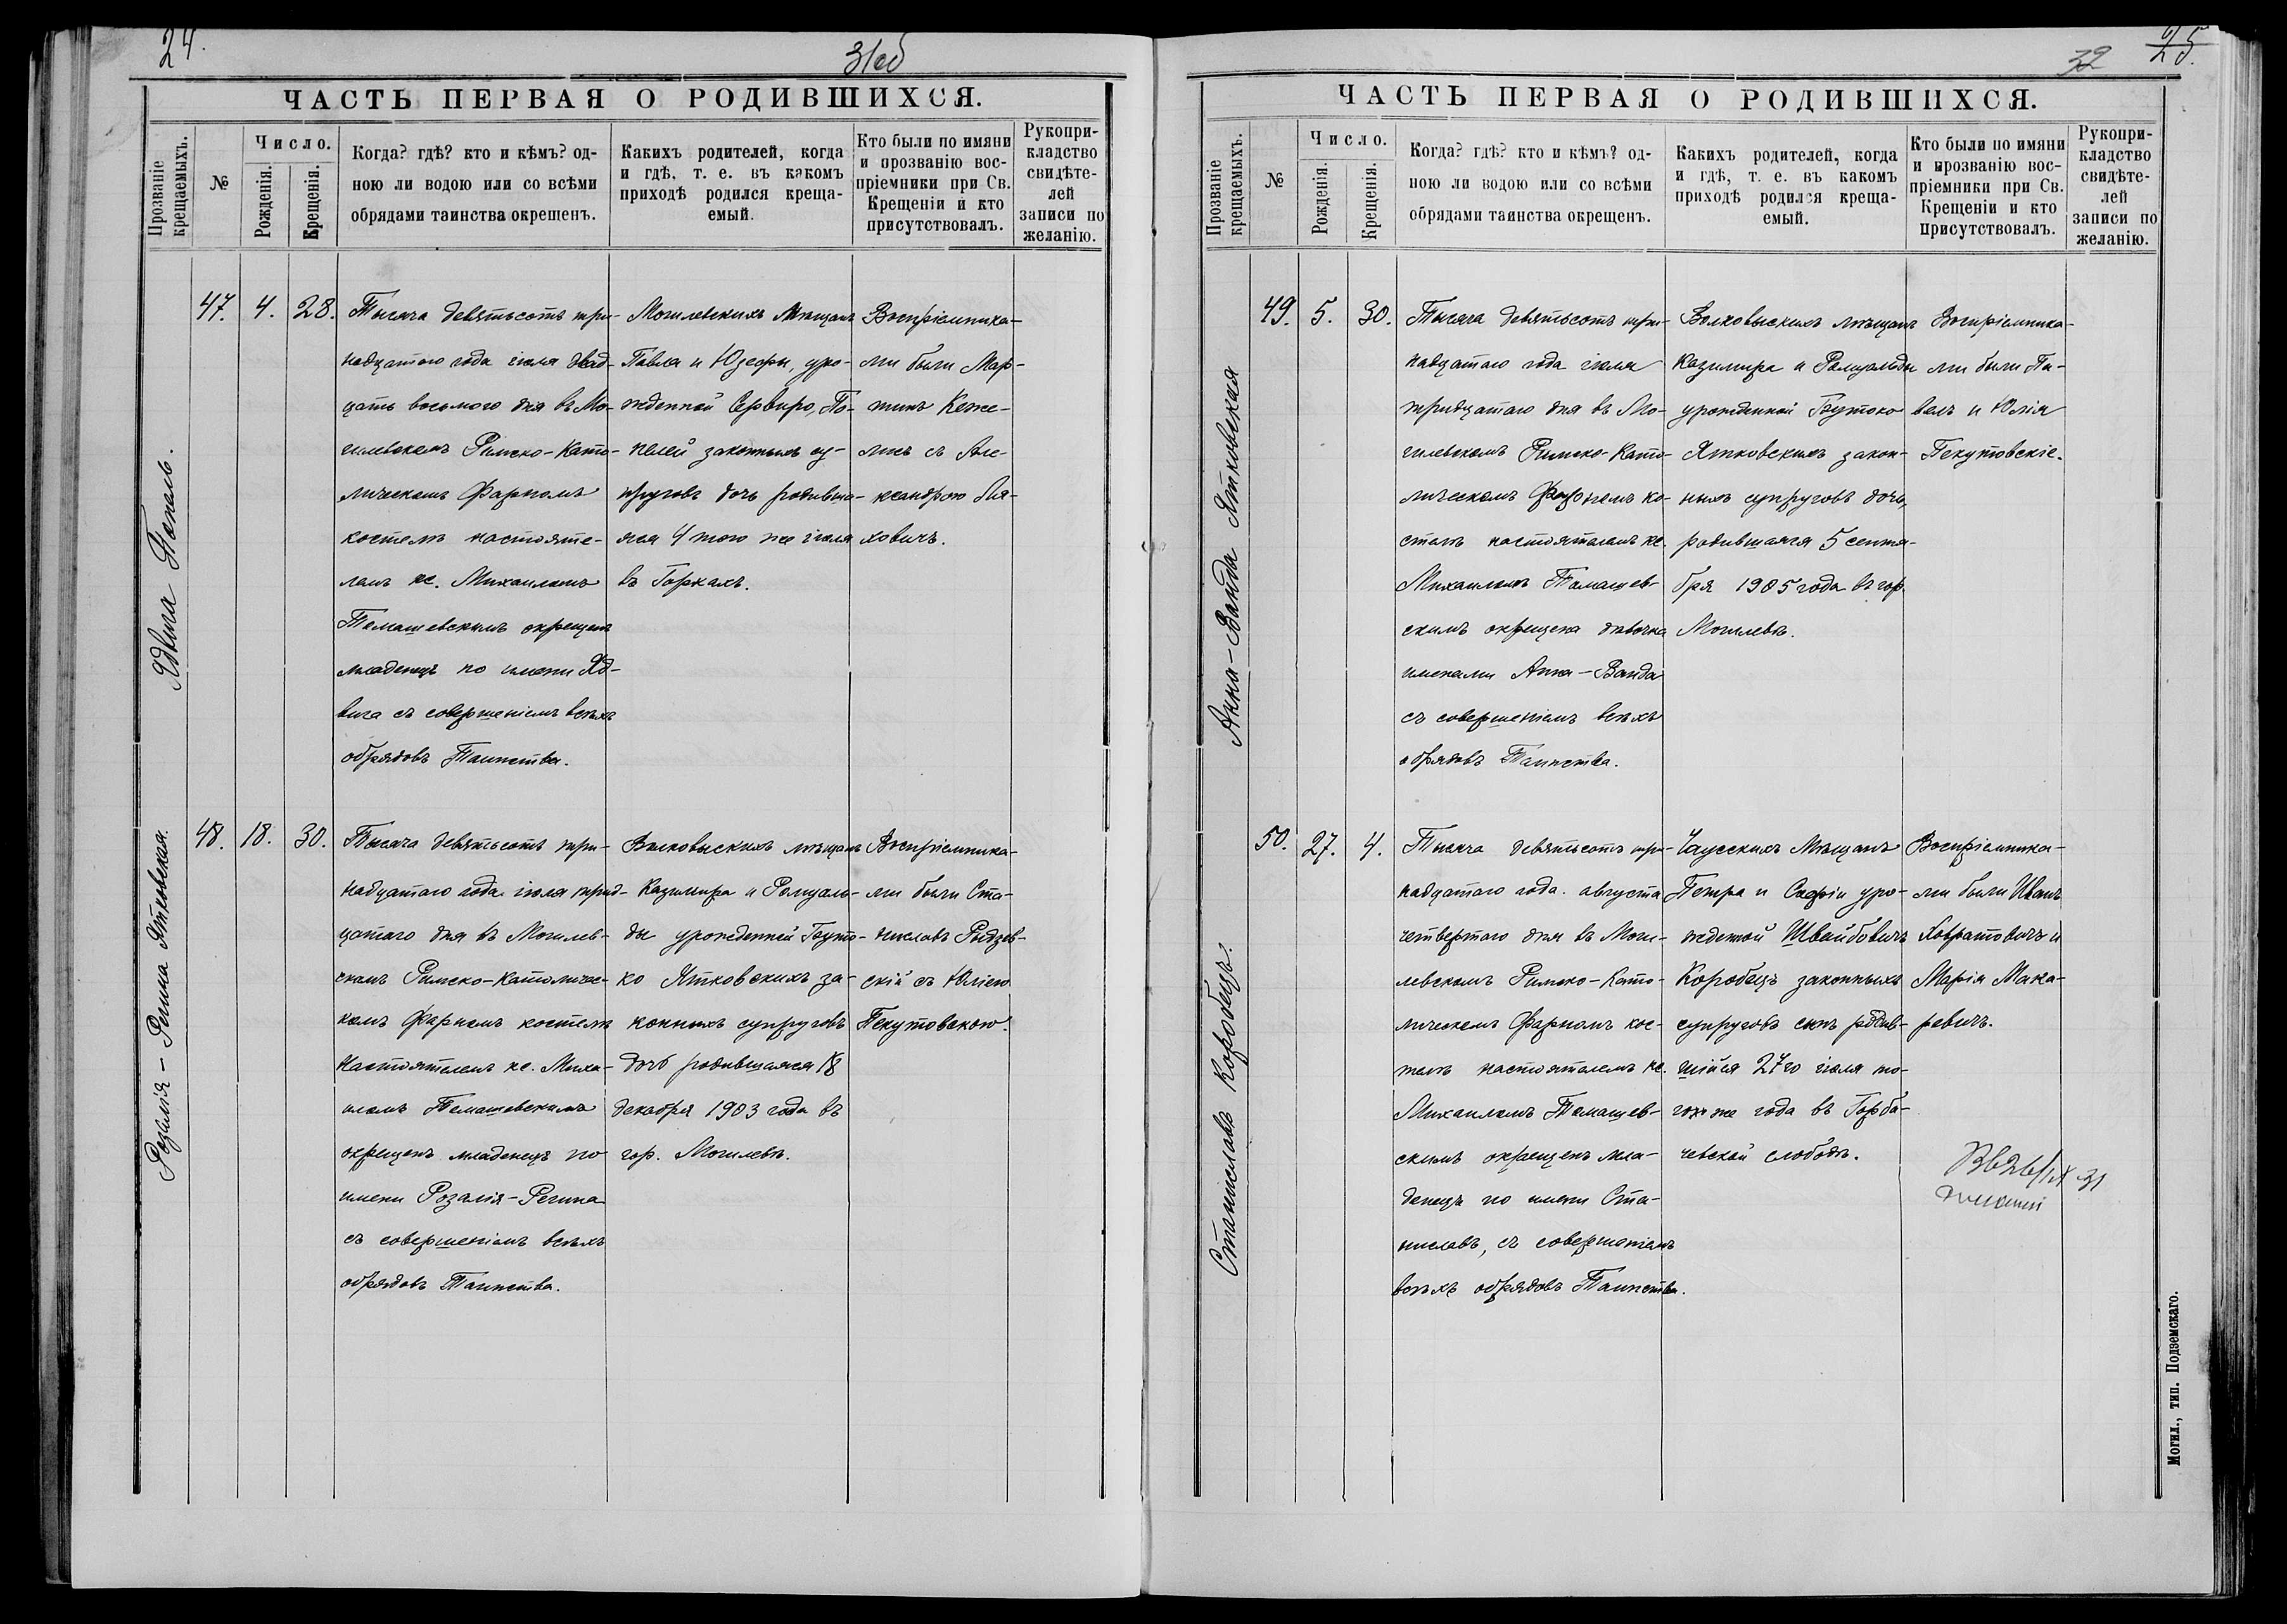 24.
31об
ЧАСТЬ ПЕРВАЯ О РОДИВШИХСЯ.
Прозваніе крещаемыхъ.
№
Число.
Рожденія.
Крещенія.
Когда? гдѣ? кто и кѣмъ? од-
ною ли водою или со всѣми
обрядами таинства окрещенъ.
Какихъ родителей, когда
и гдѣ, т. е. въ какомъ
приходѣ родился креща-
емый.
Кто были по имяни
и прозванію вос-
пріемники при Св.
Крещеніи и кто
присутствовалъ.
Рукопри-
кладство
свидѣте-
лей
записи по
желанію.
Ядвига
47. 4. 28.
Тысяча девятьсотъ три-
надцатого года іюля двад-
цать восьмого дня въ Мо-
гилевскомъ Римско-Като-
лическомъ Фарномъ
костелѣ настояте-
лемъ кс. Михаиломъ
Томашевскимъ окрещенъ
младенецъ по имени Яд-
вига съ совершеніемъ всѣхъ
обрядовъ Таинства.
Могилевскихъ мѣщанъ
Павла и Юзефы, уро-
жденной Сервиро,
законныхъ су-
пруговъ дочь родивша-
яся 4 того же іюля
въ Горкахъ.
Воспріемника-
ми были Мар-
тинъ
съ Але-
ксандрою
ховичъ.
Розалія-Регина Ятковская.
48. 18. 30.
Тысяча девятьсотъ три-
надцатаго года іюля трид-
цатаго дня въ Могилев-
скомъ Римско-Католичес-
комъ Фарномъ костелѣ
настоятелемъ кс. Миха-
иломъ Томашевскимъ
окрещенъ младенецъ по
имени Розалія-Регина
съ совершеніемъ всѣхъ
обрядовъ Таинства.
Волковыскихъ мѣщанъ
Казимира и Ромуаль-
ды урожденной Гоуто-
ко Ятковскихъ за-
конныхъ супруговъ
дочь родившаяся 18
декабря 1903 года въ
гор. Могилевѣ.
Воспріемника-
ми были Ста-
ниславъ Рыдзев-
скій съ Юліею
Пекутовскою.
32
25.
ЧАСТЬ ПЕРВАЯ О РОДИВШИХСЯ.
Прозваніе крещаемыхъ.
№
Число.
Рожденія.
Крещенія.
Когда? гдѣ? кто и кѣмъ? од-
ною ли водою или со всѣми
обрядами таинства окрещенъ.
Какихъ родителей, когда
и гдѣ, т. е. въ какомъ
приходѣ родился креща-
емый.
Кто были по имяни
и прозванію вос-
пріемники при Св.
Крещеніи и кто
присутствовалъ.
Рукопри-
кладство
свидѣте-
лей
записи по
желанію.
Анна-Ванда Ятковская
49. 5. 30.
Тысяча девятьсотъ три-
надцатаго года іюля
тридцатаго дня въ Мо-
гилевскомъ Римско-Като-
лическомъ Фарномъ ко-
стелѣ настоятелемъ кс.
Михаиломъ Томашев-
скимъ окрещена дѣвочка
именами Анна-Ванда
съ совершеніемъ всѣхъ
обрядовъ Таинства.
Волковыскихъ мѣщанъ
Казимира и Ромуальды
урожденной Гоутоко
Ятковскихъ закон-
ныхъ супруговъ дочь,
родившаяся 5 сентя-
бря 1905 года въ гор.
Могилевѣ.
Воспріемника-
ми были Па-
велъ и Юлія
Пекутовскіе.
Станиславъ Коробецъ.
50. 27. 4.
Тысяча девятьсотъ три-
надцатаго года августа
четвертаго дня въ Моги-
левскомъ Римско-Като-
лическомъ Фарномъ кос-
телѣ настоятелемъ кс.
Михаиломъ Томашев-
скимъ окрещенъ мла-
денецъ по имени Ста-
ниславъ, съ совершеніемъ
всѣхъ обрядовъ Таинства.
Чаусскихъ Мѣщанъ
Петра и Софіи уро-
жденной Швайбовичъ
Коробецъ законныхъ
супруговъ сынъ родив-
шійся 27го іюля то-
го же года въ Горба-
чевской слободѣ.
Воспріемника-
ми были Иванъ
Ховратовичъ и
Марія Мака-
ревичъ.
Могил., тип. Подземскаго.